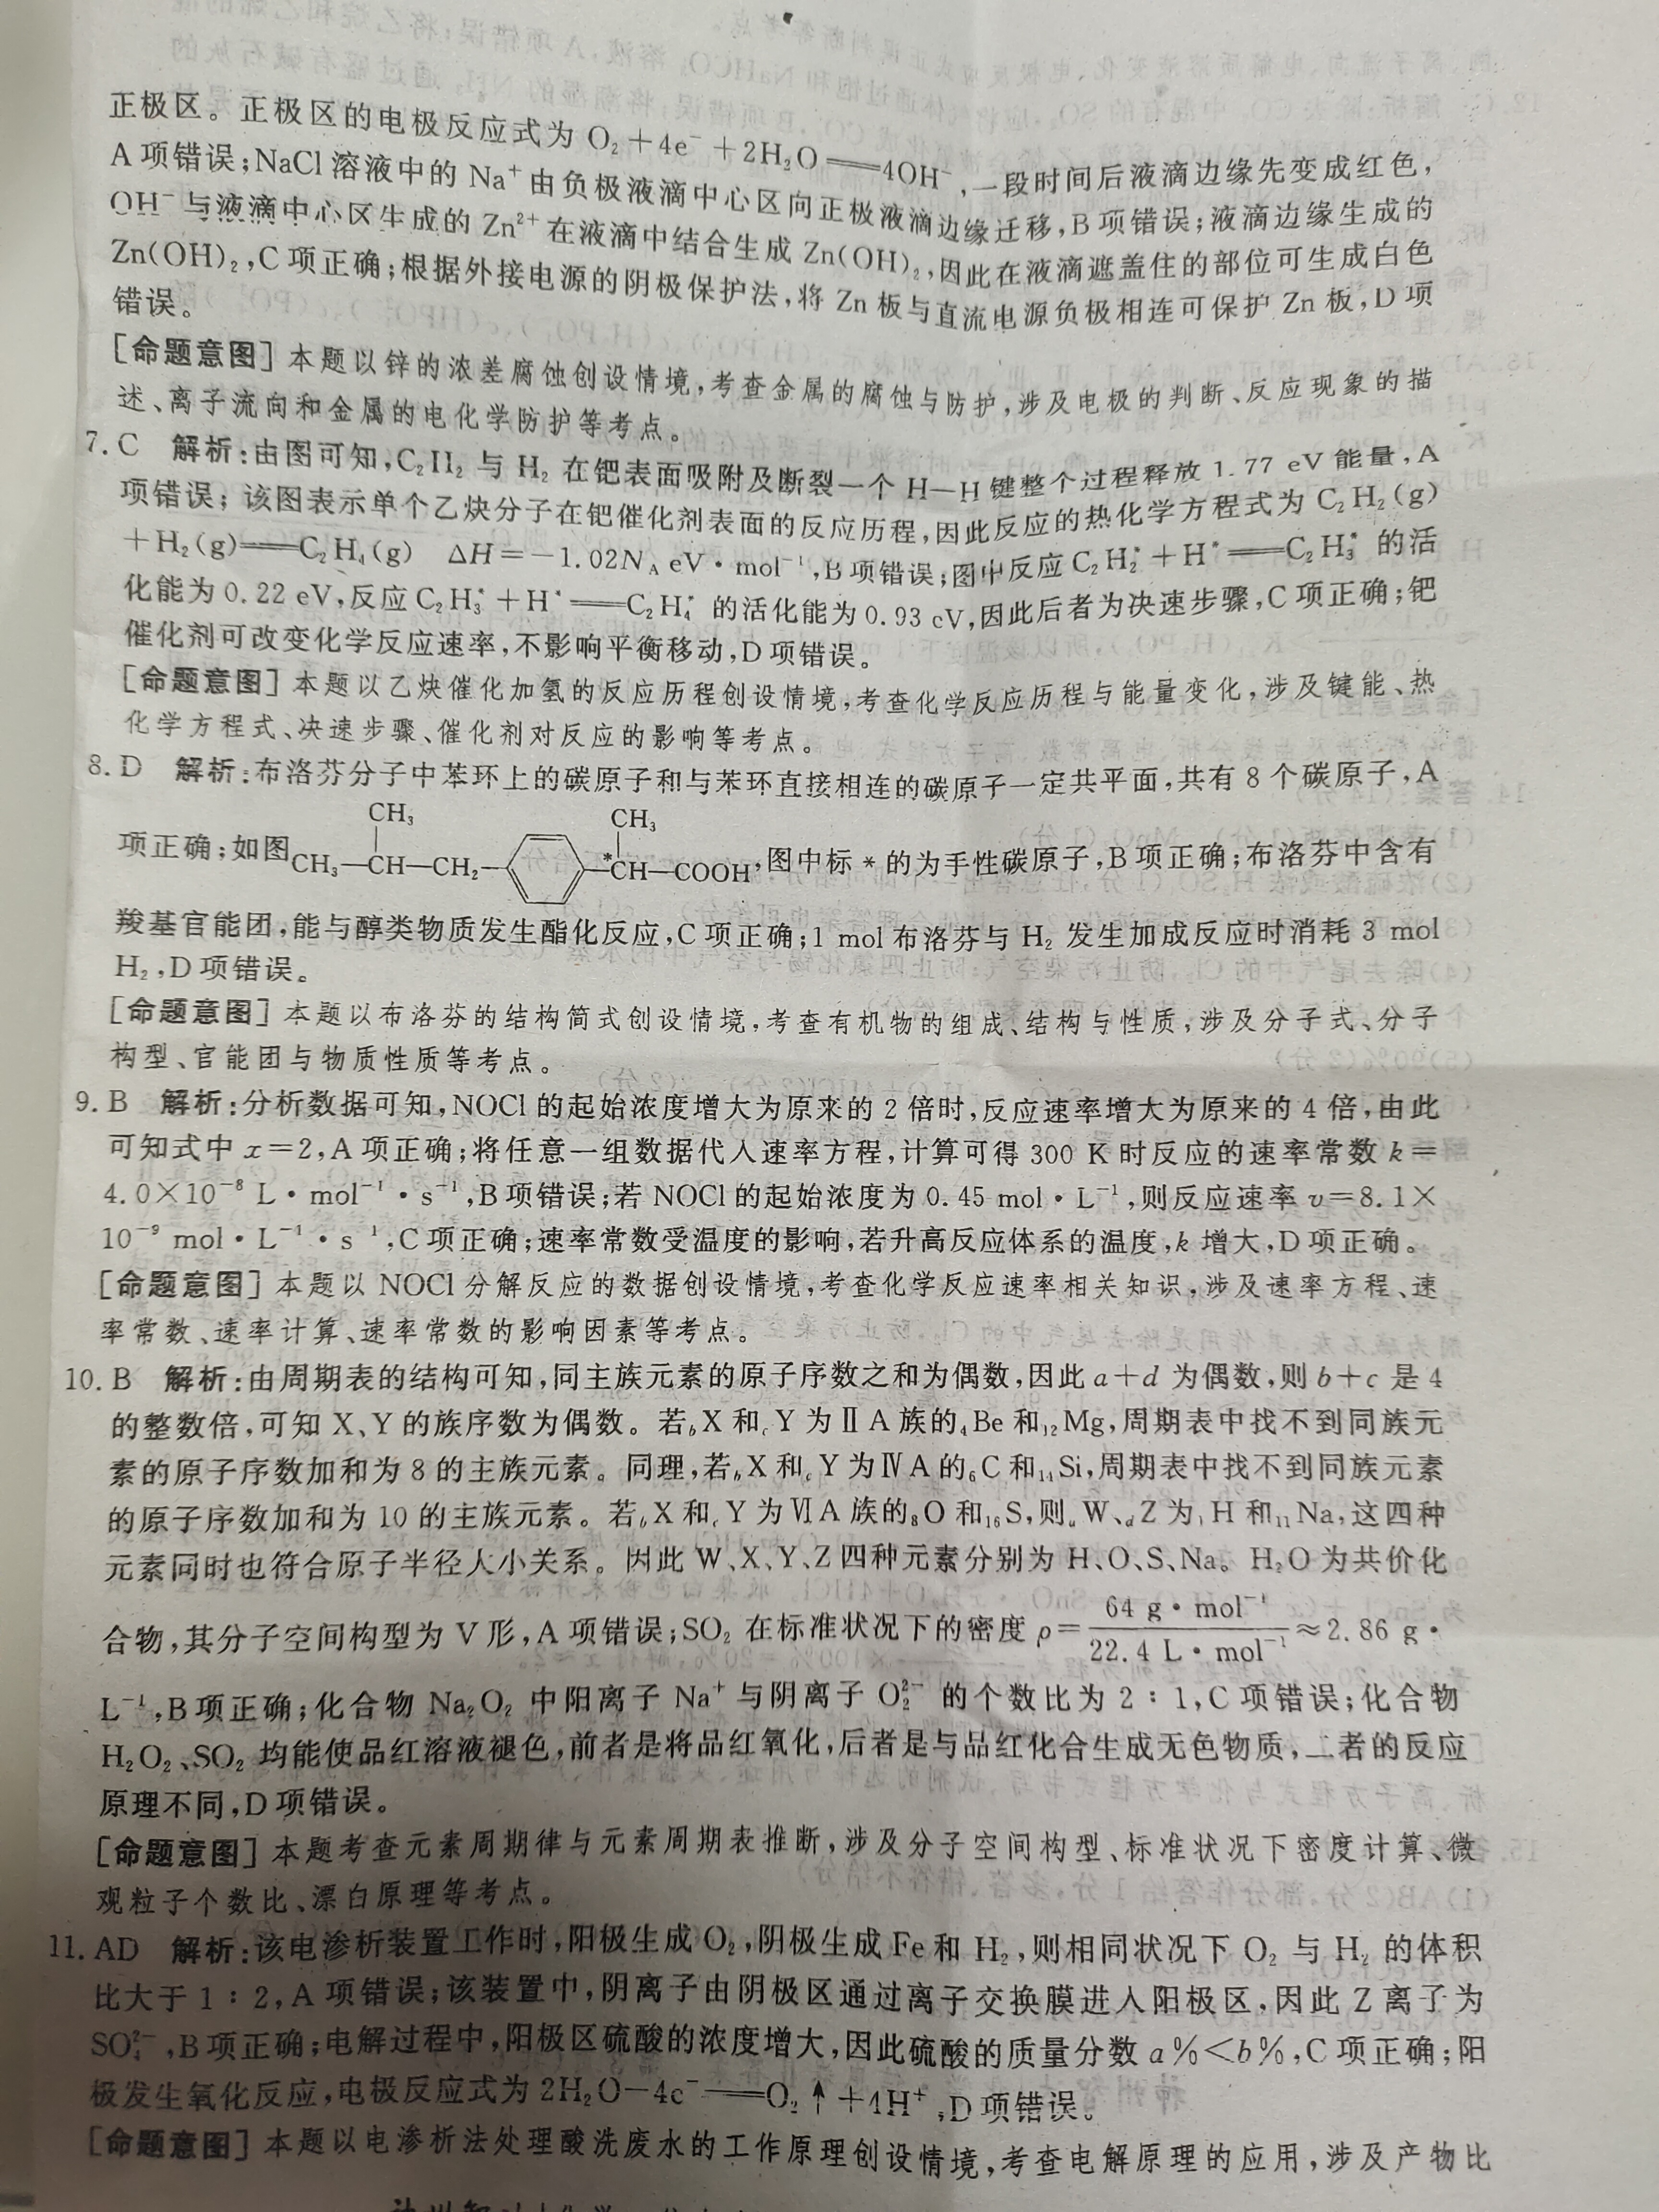 正极区。正极区的电极反应式为 O₂+4e⁻+2H₂O══4OH⁻,一段时间后液滴边缘先变成红色,
A 项错误;NaCl 溶液中的 Na⁺ 由负极液滴中心区向正极液滴边缘迁移,B 项错误;液滴边缘生成的
OH⁻ 与液滴中心区生成的 Zn²⁺ 在液滴中结合生成 Zn(OH)₂,因此在液滴遮盖住的部位可生成白色
Zn(OH)₂,C 项正确;根据外接电源的阴极保护法,将 Zn 板与直流电源负极相连可保护 Zn 板,D 项
错误。
[命题意图] 本题以锌的浓差腐蚀创设情境,考查金属的腐蚀与防护,涉及电极的判断、反应现象的描
述、离子流向和金属的电化学防护等考点。
7. C 解析:由图可知,C₂H₂ 与 H₂ 在钯表面吸附及断裂一个 H—H 键整个过程释放 1.77 eV 能量,A
项错误;该图表示单个乙炔分子在钯催化剂表面的反应历程,因此反应的热化学方程式为 C₂H₂(g)
+H₂(g)══C₂H₄(g) ΔH=−1.02N_A eV·mol⁻¹,B 项错误;图中反应 C₂H₂*+H*══C₂H₃* 的活
化能为 0.22 eV,反应 C₂H₃*+H*══C₂H₄* 的活化能为 0.93 eV,因此后者为决速步骤,C 项正确;钯
催化剂可改变化学反应速率,不影响平衡移动,D 项错误。
[命题意图] 本题以乙炔催化加氢的反应历程创设情境,考查化学反应历程与能量变化,涉及键能、热
化学方程式、决速步骤、催化剂对反应的影响等考点。
8. D 解析:布洛芬分子中苯环上的碳原子和与苯环直接相连的碳原子一定共平面,共有 8 个碳原子,A
CH₃ CH₃
项正确;如图CH₃—CH—CH₂— —*CH—COOH,图中标 * 的为手性碳原子,B 项正确;布洛芬中含有
羧基官能团,能与醇类物质发生酯化反应,C 项正确;1 mol 布洛芬与 H₂ 发生加成反应时消耗 3 mol
H₂,D 项错误。
[命题意图] 本题以布洛芬的结构简式创设情境,考查有机物的组成、结构与性质,涉及分子式、分子
构型、官能团与物质性质等考点。
9. B 解析:分析数据可知,NOCl 的起始浓度增大为原来的 2 倍时,反应速率增大为原来的 4 倍,由此
可知式中 x=2,A 项正确;将任意一组数据代入速率方程,计算可得 300 K 时反应的速率常数 k=
4.0×10⁻⁸ L·mol⁻¹·s⁻¹,B 项错误;若 NOCl 的起始浓度为 0.45 mol·L⁻¹,则反应速率 v=8.1×
10⁻⁹ mol·L⁻¹·s⁻¹,C 项正确;速率常数受温度的影响,若升高反应体系的温度,k 增大,D 项正确。
[命题意图] 本题以 NOCl 分解反应的数据创设情境,考查化学反应速率相关知识,涉及速率方程、速
率常数、速率计算、速率常数的影响因素等考点。
10. B 解析:由周期表的结构可知,同主族元素的原子序数之和为偶数,因此 a+d 为偶数,则 b+c 是 4
的整数倍,可知 X、Y 的族序数为偶数。若 bX 和 cY 为ⅡA 族的 ₄Be 和 ₁₂Mg,周期表中找不到同族元
素的原子序数加和为 8 的主族元素。同理,若 bX 和 cY 为ⅣA 的 ₆C 和 ₁₄Si,周期表中找不到同族元素
的原子序数加和为 10 的主族元素。若 bX 和 cY 为ⅥA 族的 ₈O 和 ₁₆S,则 aW、dZ 为 ₁H 和 ₁₁Na,这四种
元素同时也符合原子半径大小关系。因此 W、X、Y、Z 四种元素分别为 H、O、S、Na。H₂O 为共价化
合物,其分子空间构型为 V 形,A 项错误;SO₂ 在标准状况下的密度 ρ=64 g·mol⁻¹/22.4 L·mol⁻¹≈2.86 g·
L⁻¹,B 项正确;化合物 Na₂O₂ 中阳离子 Na⁺ 与阴离子 O₂²⁻ 的个数比为 2∶1,C 项错误;化合物
H₂O₂、SO₂ 均能使品红溶液褪色,前者是将品红氧化,后者是与品红化合生成无色物质,二者的反应
原理不同,D 项错误。
[命题意图] 本题考查元素周期律与元素周期表推断,涉及分子空间构型、标准状况下密度计算、微
观粒子个数比、漂白原理等考点。
11. AD 解析:该电渗析装置工作时,阳极生成 O₂,阴极生成 Fe 和 H₂,则相同状况下 O₂ 与 H₂ 的体积
比大于 1∶2,A 项错误;该装置中,阴离子由阴极区通过离子交换膜进入阳极区,因此 Z 离子为
SO₄²⁻,B 项正确;电解过程中,阳极区硫酸的浓度增大,因此硫酸的质量分数 a%<b%,C 项正确;阳
极发生氧化反应,电极反应式为 2H₂O−4e⁻══O₂↑+4H⁺,D 项错误。
[命题意图] 本题以电渗析法处理酸洗废水的工作原理创设情境,考查电解原理的应用,涉及产物比